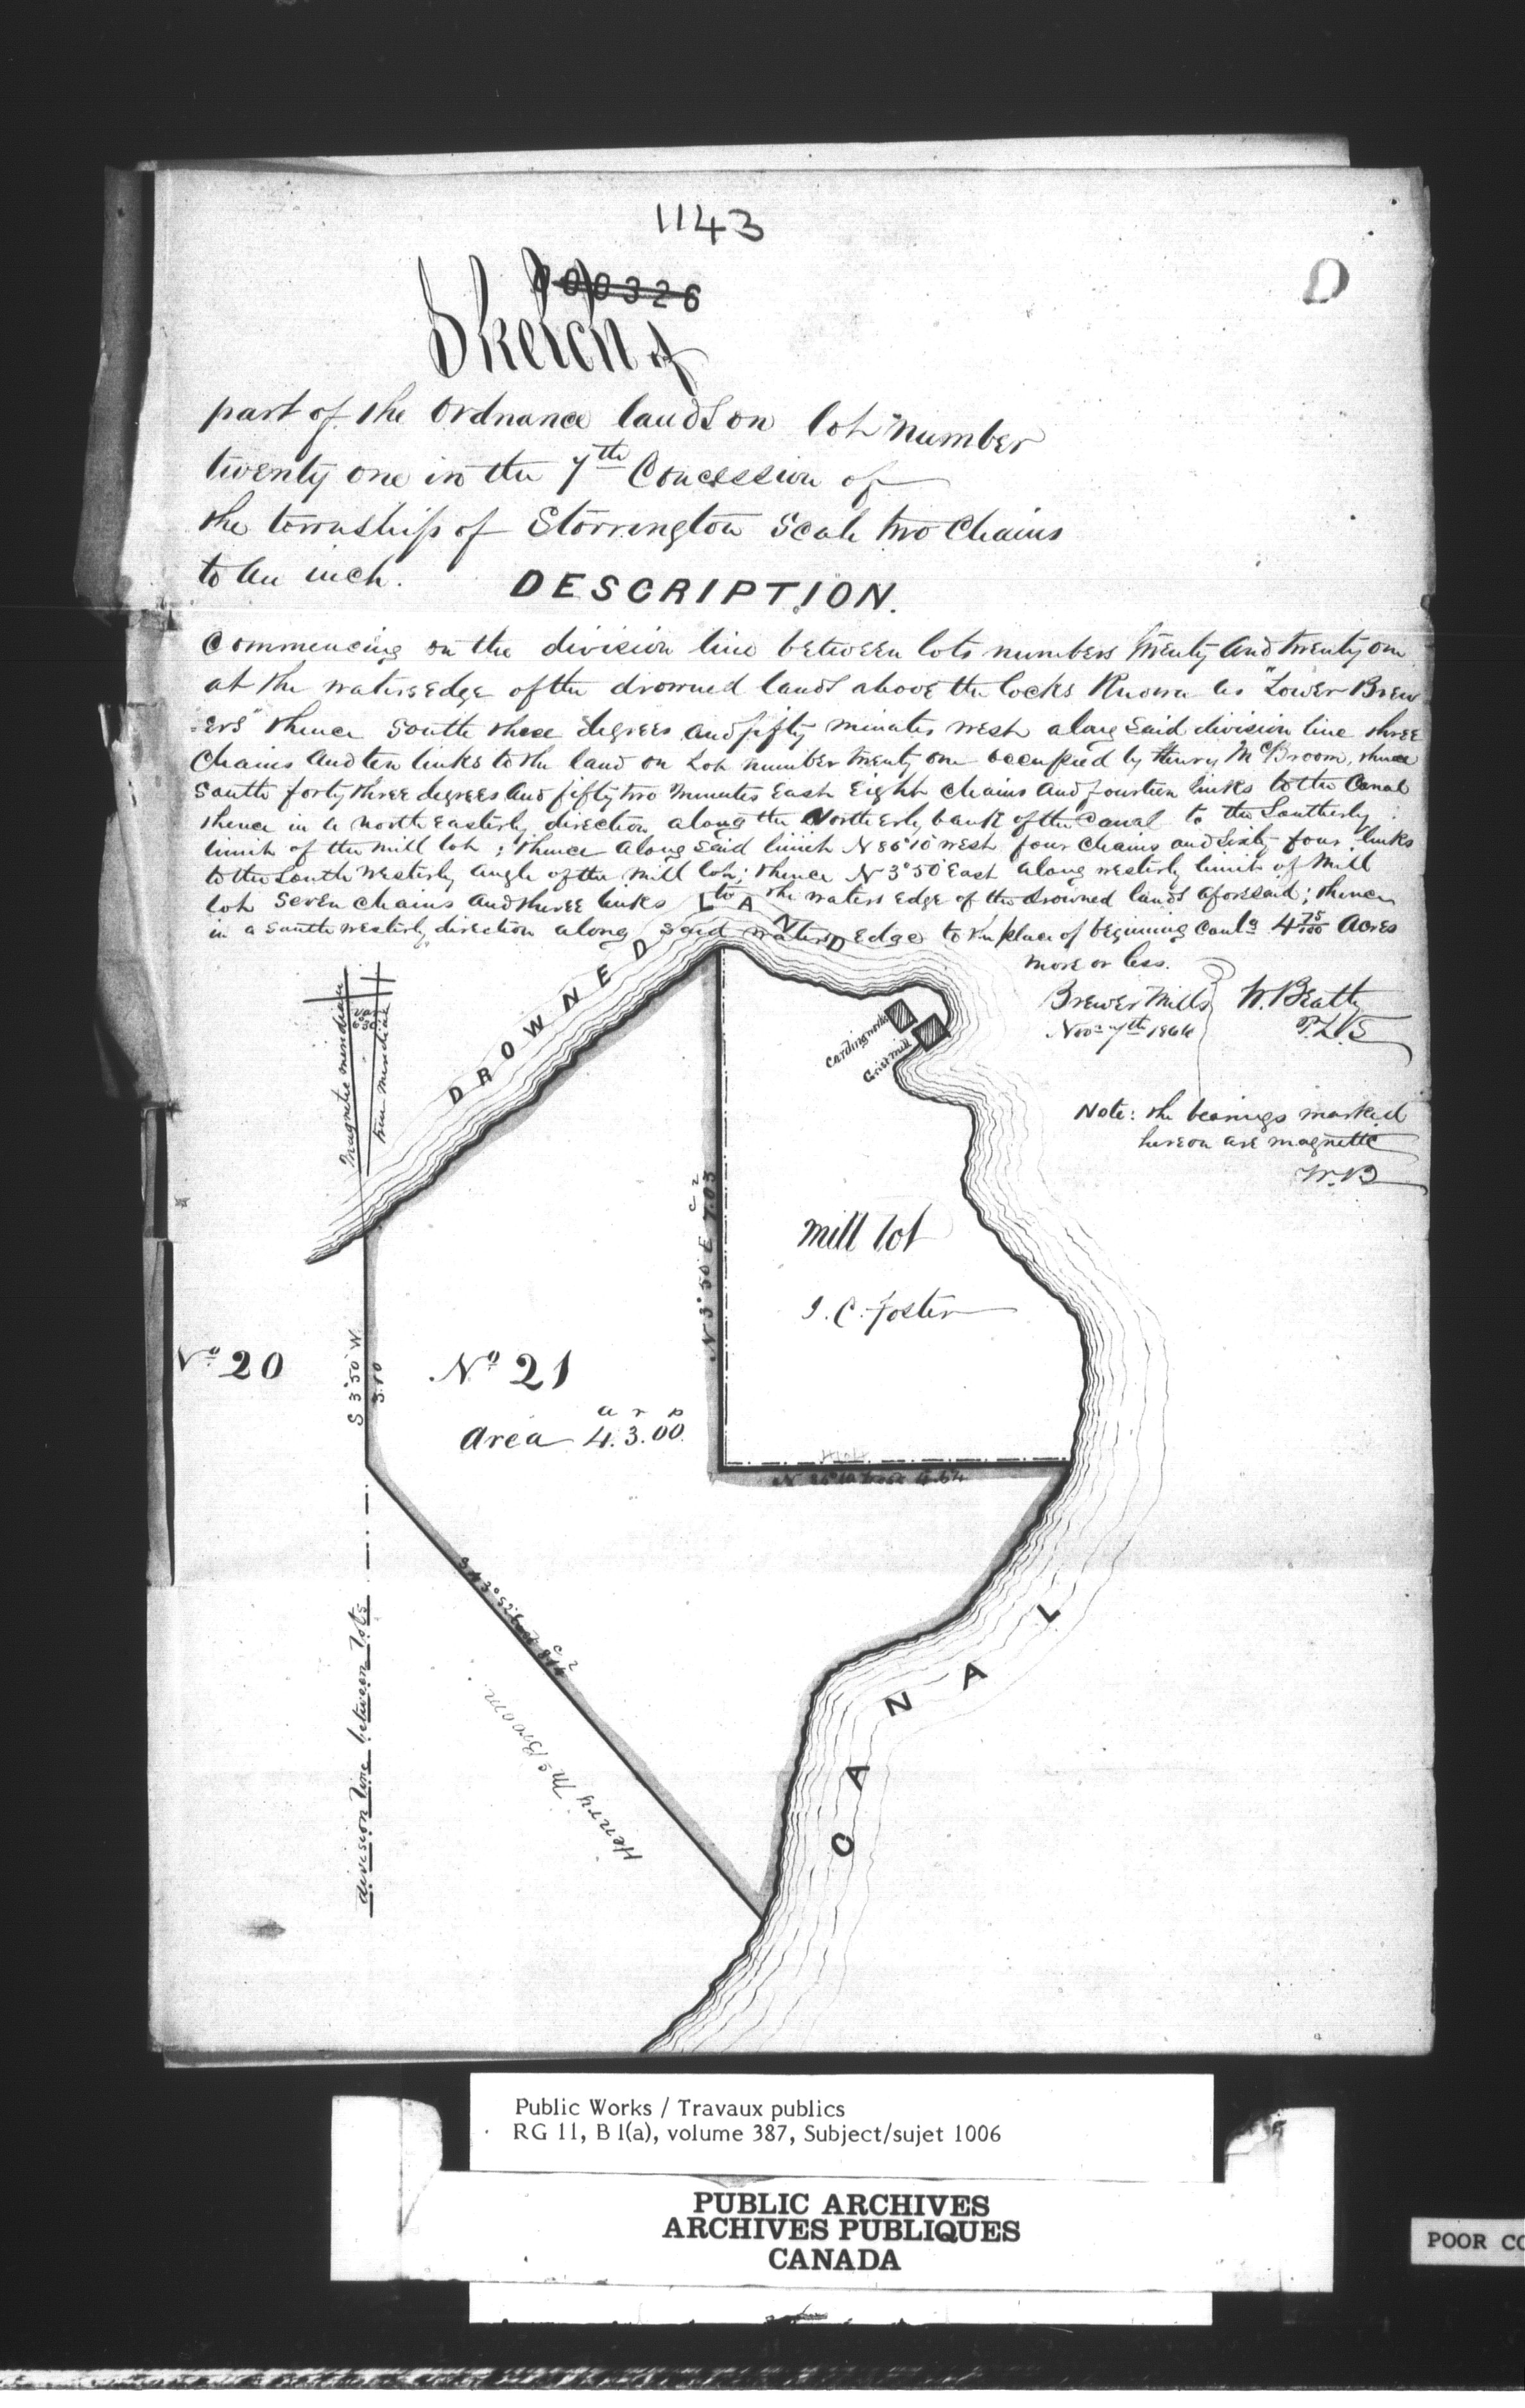 1143
000326
D
Sketch of
part of the Ordnance lands on lot number
twenty one in the 7th Concession of
the township of Storrington Scale two Chains
to an inch.
DESCRIPTION.
Commencing on the division line between lots numbers twenty and twenty one
at the waters edge of the drowned lands above the locks Known as "Lower Brew
=ers" thence South three degrees and fifty minutes west along said division line three
Chains and ten links to the land on Lot number twenty one occupied by Henry McBroom, thence
South forty three degrees and fifty two minutes East Eight chains and fourteen links to the Canal
thence in a north easterly direction along the Northerly bank of the Canal to the Southerly
limit of the mill lot; thence along said limit N 86°10' west four chains and sixty four links
to the South westerly angle of the mill lot; thence N 3°50' East along westerly limit of Mill
lot Seven chains and three links to the waters edge of the drowned lands aforesaid; thence
in a south westerly direction along said waters edge to the place of begining Contg 4 75/100 Acres
more or less.
Brewers Mills W. Beatty
Novr 7th 1866 P.L.S
Note: the bearings marked
hereon are magnetic
W.B
DROWNED LAND
Magnetic meridian
true meridian
Carding mill
Grist mill
N 3°50' E 7.03
mill lot
J. C. Foster
No 20
S 3°50' W
3.10
No 21
a r p
area 4.3.00.
N 86°10' West 4.64
S 43°52' East 8.14
Henry McBroom
division line between lots
CANAL
Public Works / Travaux publics
RG 11, B 1(a), volume 387, Subject/sujet 1006
PUBLIC ARCHIVES
ARCHIVES PUBLIQUES
CANADA
POOR CO